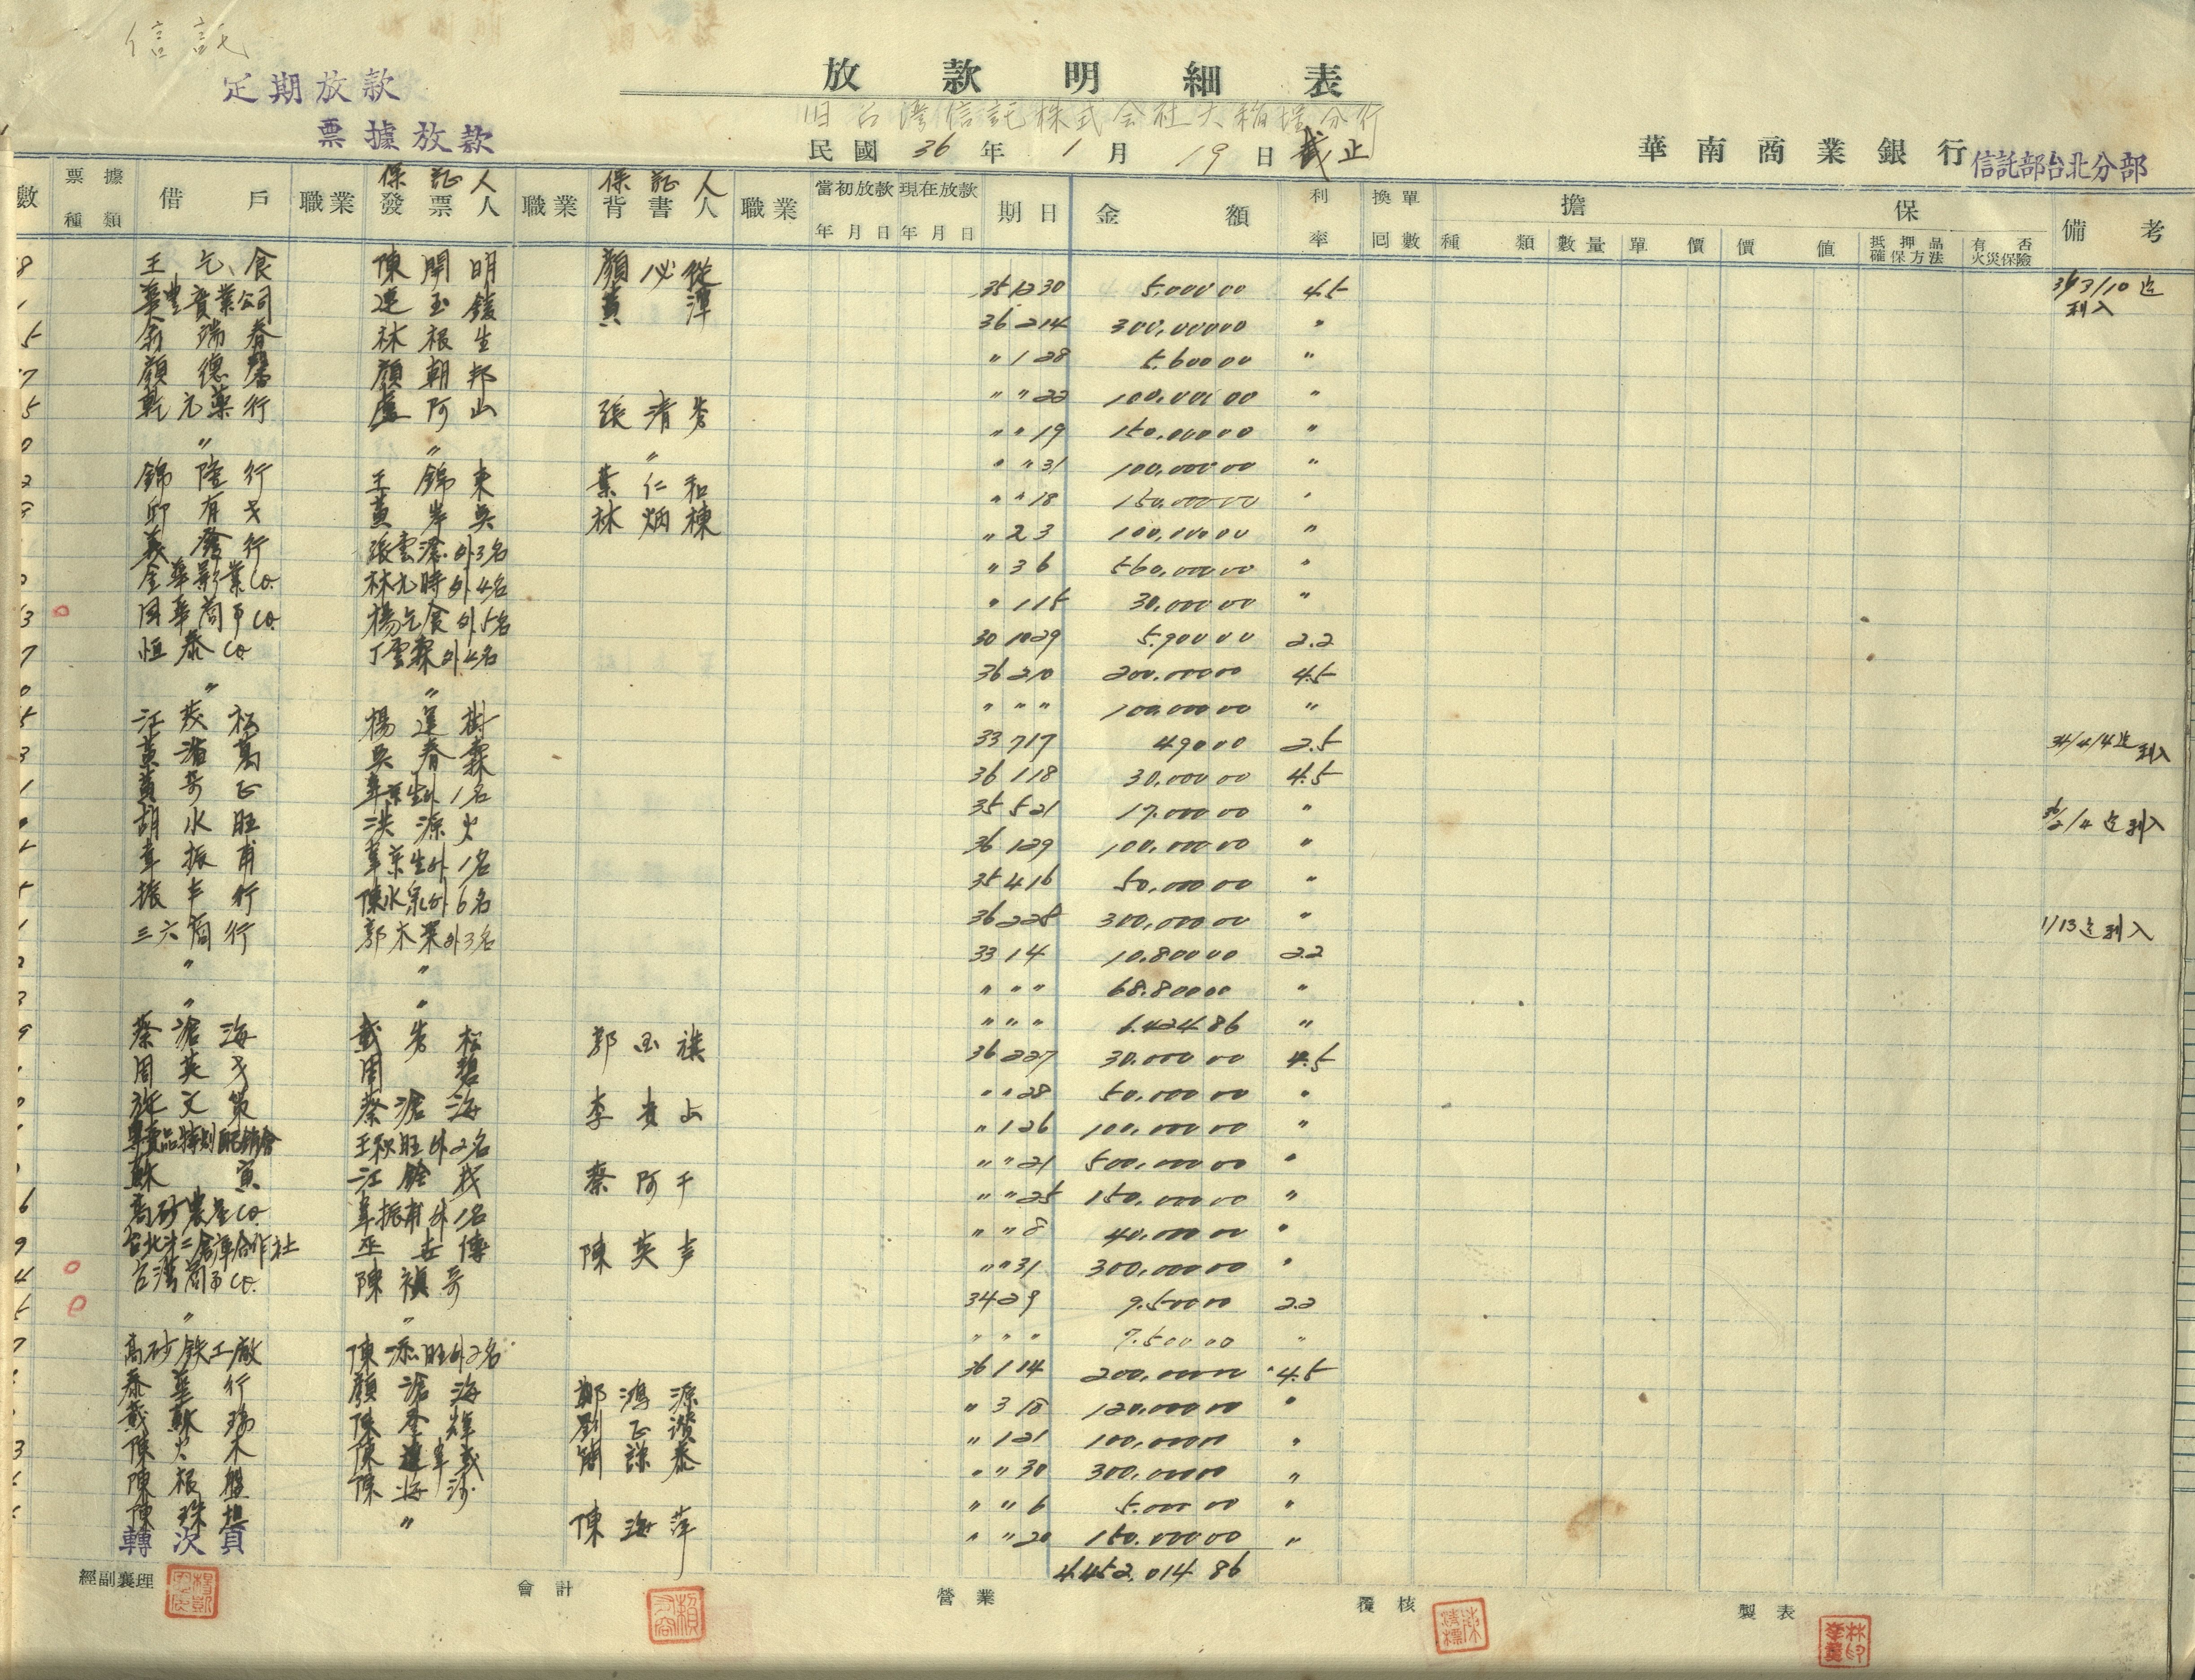 信託
定期放款
票據放款
放款明細表
旧台湾信託株式会社大稻埕分行
民國 36 年 1 月 19 日 截止
華南商業銀行 信託部台北分部
數 票據種類 借戶 職業 發票人 保証人 職業 背書人 保証人 職業 當初放款年月日 現在放款年月日 期日 金額 利率 換單回數 擔保 備考
種類 數量 單價 價值 抵押品確保方法 有否火災保險
8 王乞食 陳開明 顏必從 35 12 30 5,000 00 4.5 36/3/10迄利入
1 華豐實業公司 連玉鍰 黃潭 36 2 14 300,000 00 〃
5 翁瑞春 林根生 〃 1 28 5,600 00 〃
7 顏德馨 顏朝邦 〃 〃 22 100,000 00 〃
5 乾元藥行 盧阿山 張清秀 〃 〃 19 150,000 00 〃
0 〃 〃 〃 〃 〃 31 100,000 00 〃
2 錦陞行 王錦東 葉仁和 〃 〃 18 150,000 00 〃
邱有 黃岸 林炳棟 〃 2 3 100,000 00 〃
義發行 張雲 外3名 〃 3 6 560,000 00 〃
金華影業Co. 林九時外4名 〃 1 15 30,000 00 〃
3 国華商事Co. 楊乞食外5名 30 10 29 5,900 00 2.2
7 恒泰Co. 丁雲霖外4名 36 2 10 200,000 00 4.5
0 〃 〃 〃 〃 〃 100,000 00 〃
5 江茂松 楊蓮樹 33 7 17 490 00 2.5 34/4/4迄利入
3 黃清萬 吳春霖 36 1 18 30,000 00 4.5
1 黃奇正 韋景生外1名 35 5 21 17,000 00 〃 36/2/4迄利入
胡水旺 洪源火 36 1 29 100,000 00 〃
韋振甫 韋景生外1名 35 4 16 50,000 00 〃
振丰行 陳水泉外6名 36 2 28 300,000 00 〃 1/13迄利入
1 三六商行 郭木 外3名 33 1 4 10,800 00 2.2
2 〃 〃 〃 〃 〃 68,800 00 〃
3 〃 〃 〃 〃 〃 6,424 86 〃
9 蔡滄海 戴秀松 郭国旗 36 2 27 30,000 00 4.5
周英 周碧 〃 1 28 50,000 00 〃
施文 蔡滄海 李貴 〃 1 26 100,000 00 〃
專賣品特別配銷會 王秋旺外2名 〃 〃 21 500,000 00 〃
蘇寅 江 蔡阿千 〃 〃 25 150,000 00 〃
6 高砂農產Co. 韋振甫外1名 〃 〃 8 40,000 00 〃
9 台北第二倉庫合作社 巫世傳 陳英 〃 〃 31 300,000 00 〃
4 台湾商事Co. 陳禎奇 34 2 9 9,500 00 2.2
5 〃 〃 〃 〃 〃 7,500 00 〃
7 高砂鉄工廠 陳添旺外2名 36 1 14 200,000 00 4.5
泰華行 顏滄海 鄭鴻源 〃 3 18 120,000 00 〃
戴蘇 陳 輝 劉正 〃 1 21 100,000 00 〃
3 陳火木 陳 簡 泰 〃 〃 30 300,000 00 〃
陳根盤 陳海 〃 〃 6 5,000 00 〃
陳珠 〃 陳海萍 〃 〃 20 150,000 00 〃
轉次頁 4,452,014 86
經副襄理 會計 營業 覆核 製表